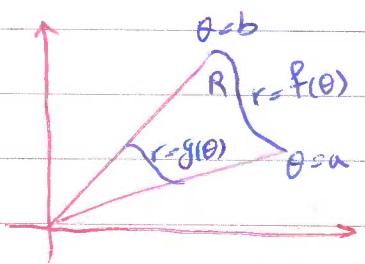 θ=b
R r=f(θ)
r=g(θ)
θ=a